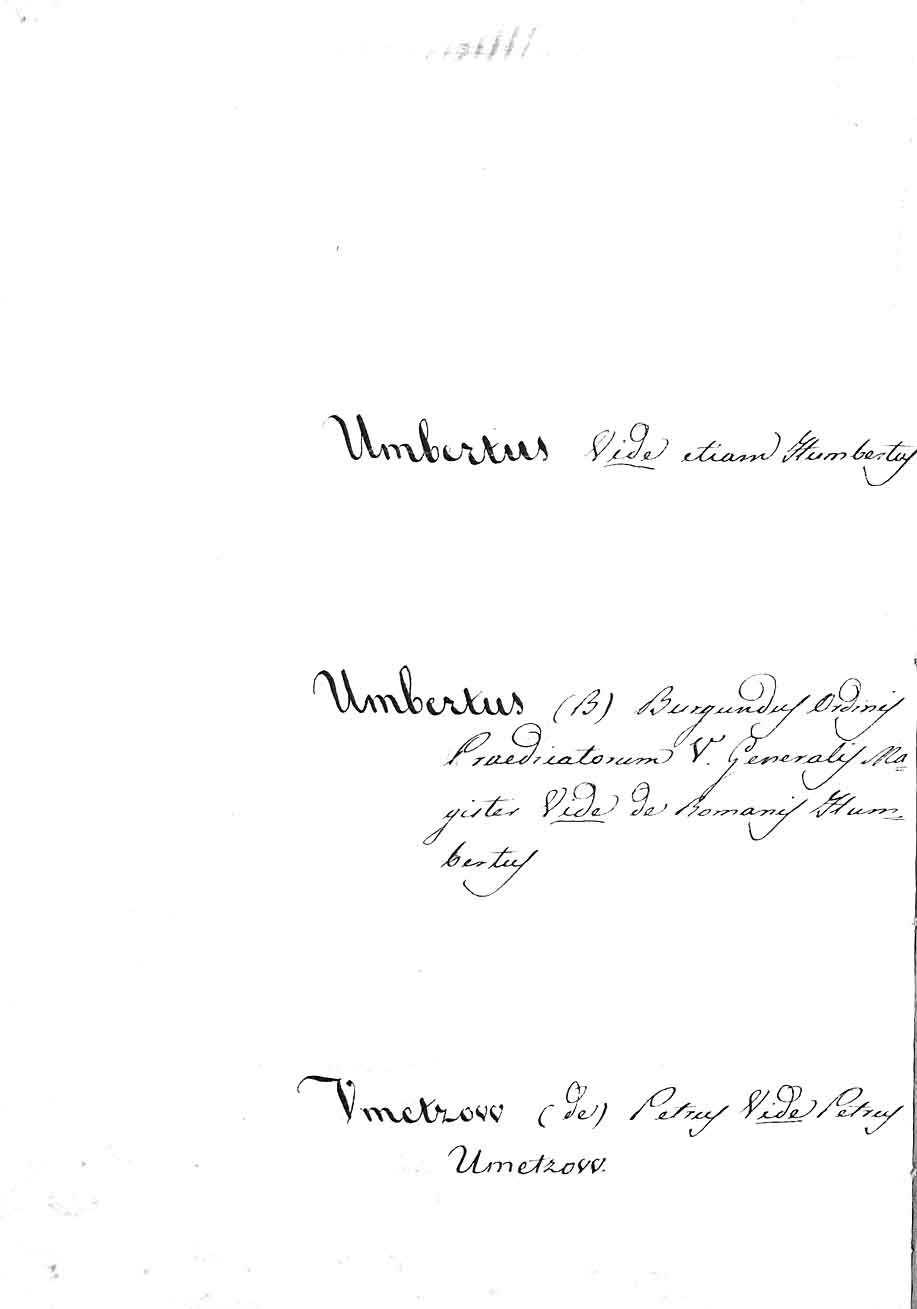 Umbertus Vide etiam Humbertus
Umbertus (B) Burgundus Ordinis
Praedicatorum V. Generalis Ma=
gister Vide de Romanis Hum=
bertus
Vmetzow (de) Petrus Vide Petrus
Umetzow.